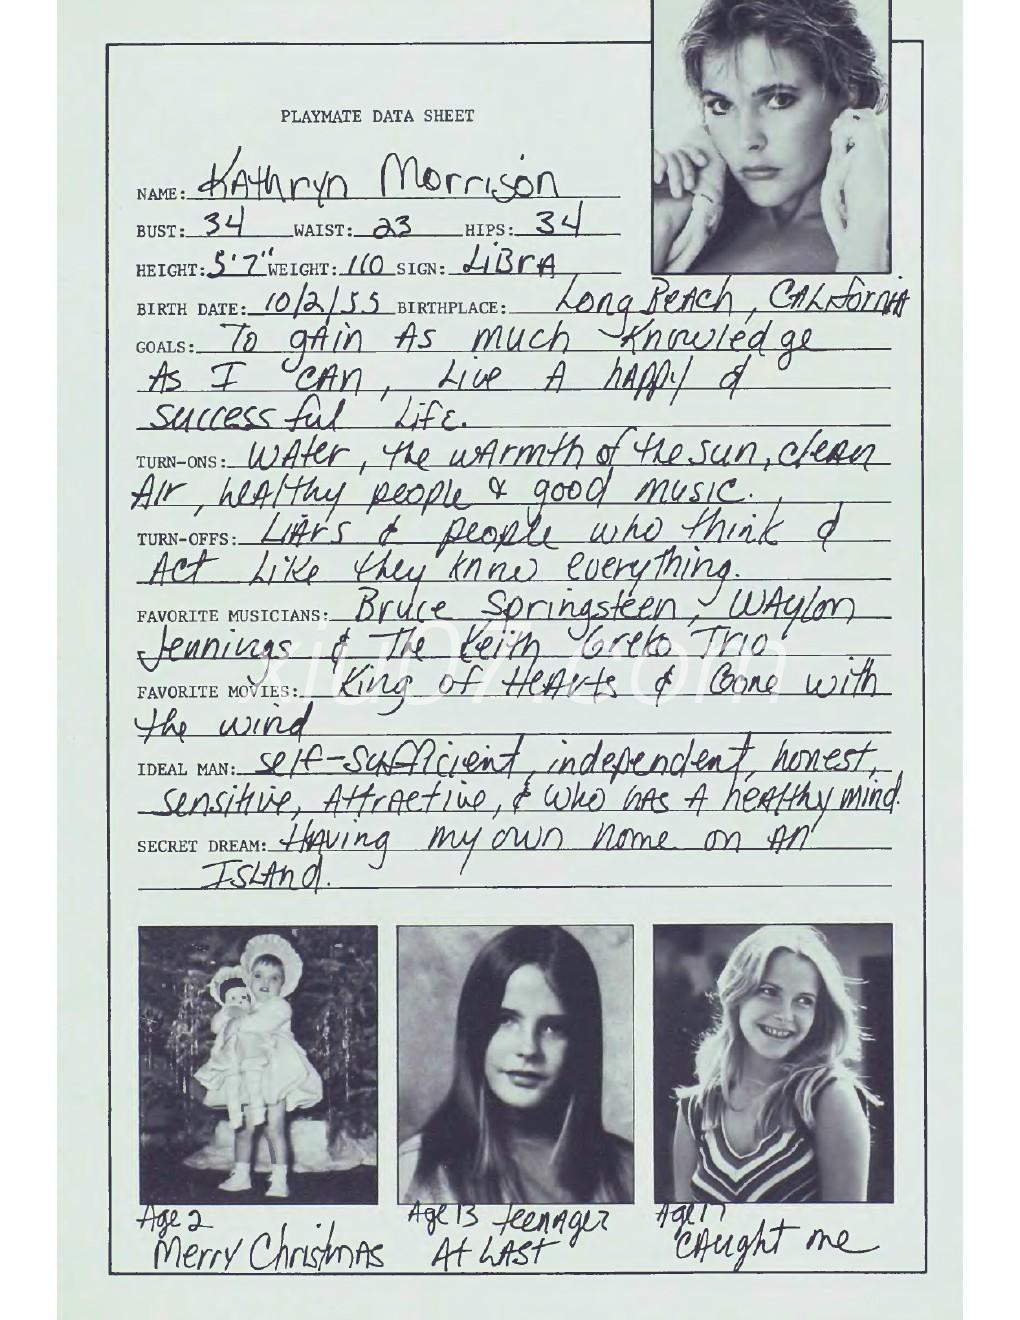 PLAYMATE DATA SHEET
NAME: KAthryn Morrison
BUST: 34 WAIST: 23 HIPS: 34
HEIGHT: 5'7" WEIGHT: 110 SIGN: LiBrA
BIRTH DATE: 10/2/55 BIRTHPLACE: Long BeAch, CALifornia
GOALS: To gAin As much Knowledge
As I CAn, Live A hAppy &
successful Life.
TURN-ONS: WAter, the wArmth of the sun, cleAn
Air, heAlthy people & good music.
TURN-OFFS: LiArs & people who think &
Act Like they know everything.
FAVORITE MUSICIANS: Bruce Springsteen, WAylon
Jennings & The Keith Greko Trio
xiu07.com
FAVORITE MOVIES: King of HeArts & Gone with
the wind
IDEAL MAN: self-sufficient, independent, honest,
sensitive, AttrActive, & who hAs A heAlthy mind.
SECRET DREAM: HAving my own home on An
IsLAnd.
Age 2
Merry ChristmAs
Age 13 teenAger
At LAST
Age 17
CAught me